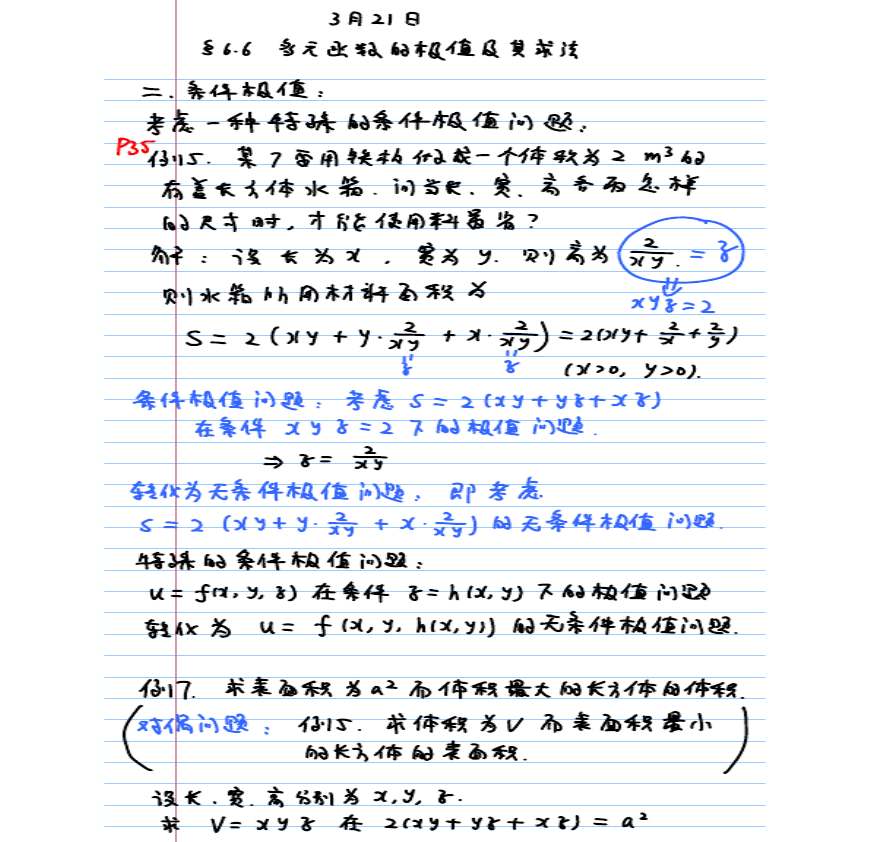 3月21日
§6.6 多元函数的极值及其求法
二.条件极值:
考虑一种特殊的条件极值问题:
P35
例15. 某厂要用铁板做成一个体积为2 m³的
有盖长方体水箱.问当长、宽、高各取怎样
的尺寸时,才能使用料最省?
解:设长为x,宽为y.则高为 2/xy. = z
则水箱所用材料面积为
⇓
xyz=2
S = 2(xy + y·2/xy + x·2/xy) = 2(xy + 2/x + 2/y)
" z " z (x>0, y>0).
条件极值问题:考虑 S = 2(xy+yz+xz)
在条件 xyz=2下的极值问题.
⇒ z = 2/xy
转化为无条件极值问题,即考虑
S = 2(xy+y·2/xy + x·2/xy)的无条件极值问题.
特殊的条件极值问题:
u = f(x,y,z)在条件 z=h(x,y)下的极值问题
转化为 u = f(x,y,h(x,y))的无条件极值问题.
例17. 求表面积为a²而体积最大的长方体的体积.
(对偶问题:例15. 求体积为V而表面积最小
的长方体的表面积.)
设长、宽、高分别为x,y,z.
求 V=xyz 在 2(xy+yz+xz)=a²